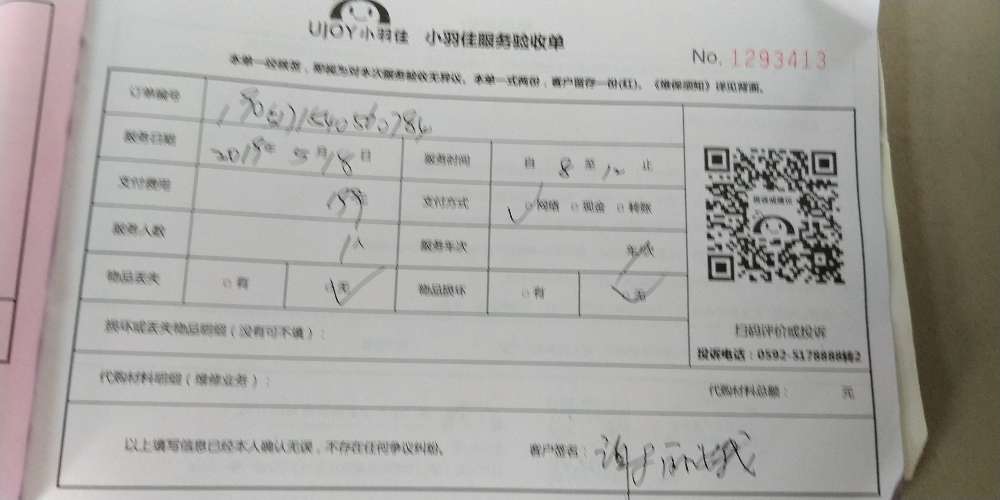 UJOY小羽佳 小羽佳服务验收单
No. 1293413
本单一经签签，即视为对本次服务验收无异议。本单一式两份，客户留存一份(红)。《维保须知》详见背面。
订单编号
服务日期 2019年 5月18日 服务时间 自 8 至 12 止
支付费用 支付方式 网络 现金 转账
服务人数 1人 服务车次 车/次
物品丢失 有 无 物品损坏 有 无
损坏或丢失物品明细（没有可不填）：
扫码评价或投诉
投诉电话：0592-5178888转2
代购材料明细（维修业务）： 代购材料总额： 元
以上填写信息已经本人确认无误，不存在任何争议纠纷。 客户签名：